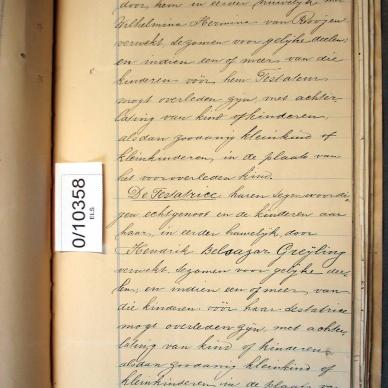 door hem in eerder huwelijk met
Wilhelmina Hermina van Rooyen
verwekt, te zamen voor gelyke deelen;
en indien een of meer van die
kinderen vóór hem Testateur
mogt overleden zyn, met achter-
lating van kind of kinderen,
alsdan zoodanig kleinkind of
kleinkinderen, in de plaats van
het vooroverleden kind.
De Testatrice haren tegenwoordi-
gen echtgenoot en de kinderen aan
haar, in eerder huwelijk, door
Hendrik Belsazar Greyling
verwekt, te zamen voor gelyke dee-
len; en indien een of meer van
die kinderen vóór haar testatrice
mogt overleden zyn, met achter-
lating van kind of kinderen,
alsdan zoodanig kleinkind of
kleinkinderen in de plaats van
0/10358
BLS.